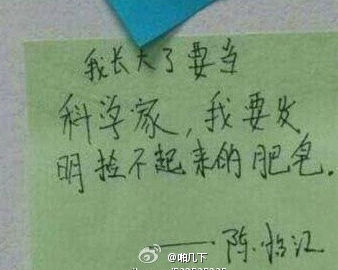 我长大了要当
科学家,我要发
明捡不起来的肥皂.
——陈临江
@啪几下